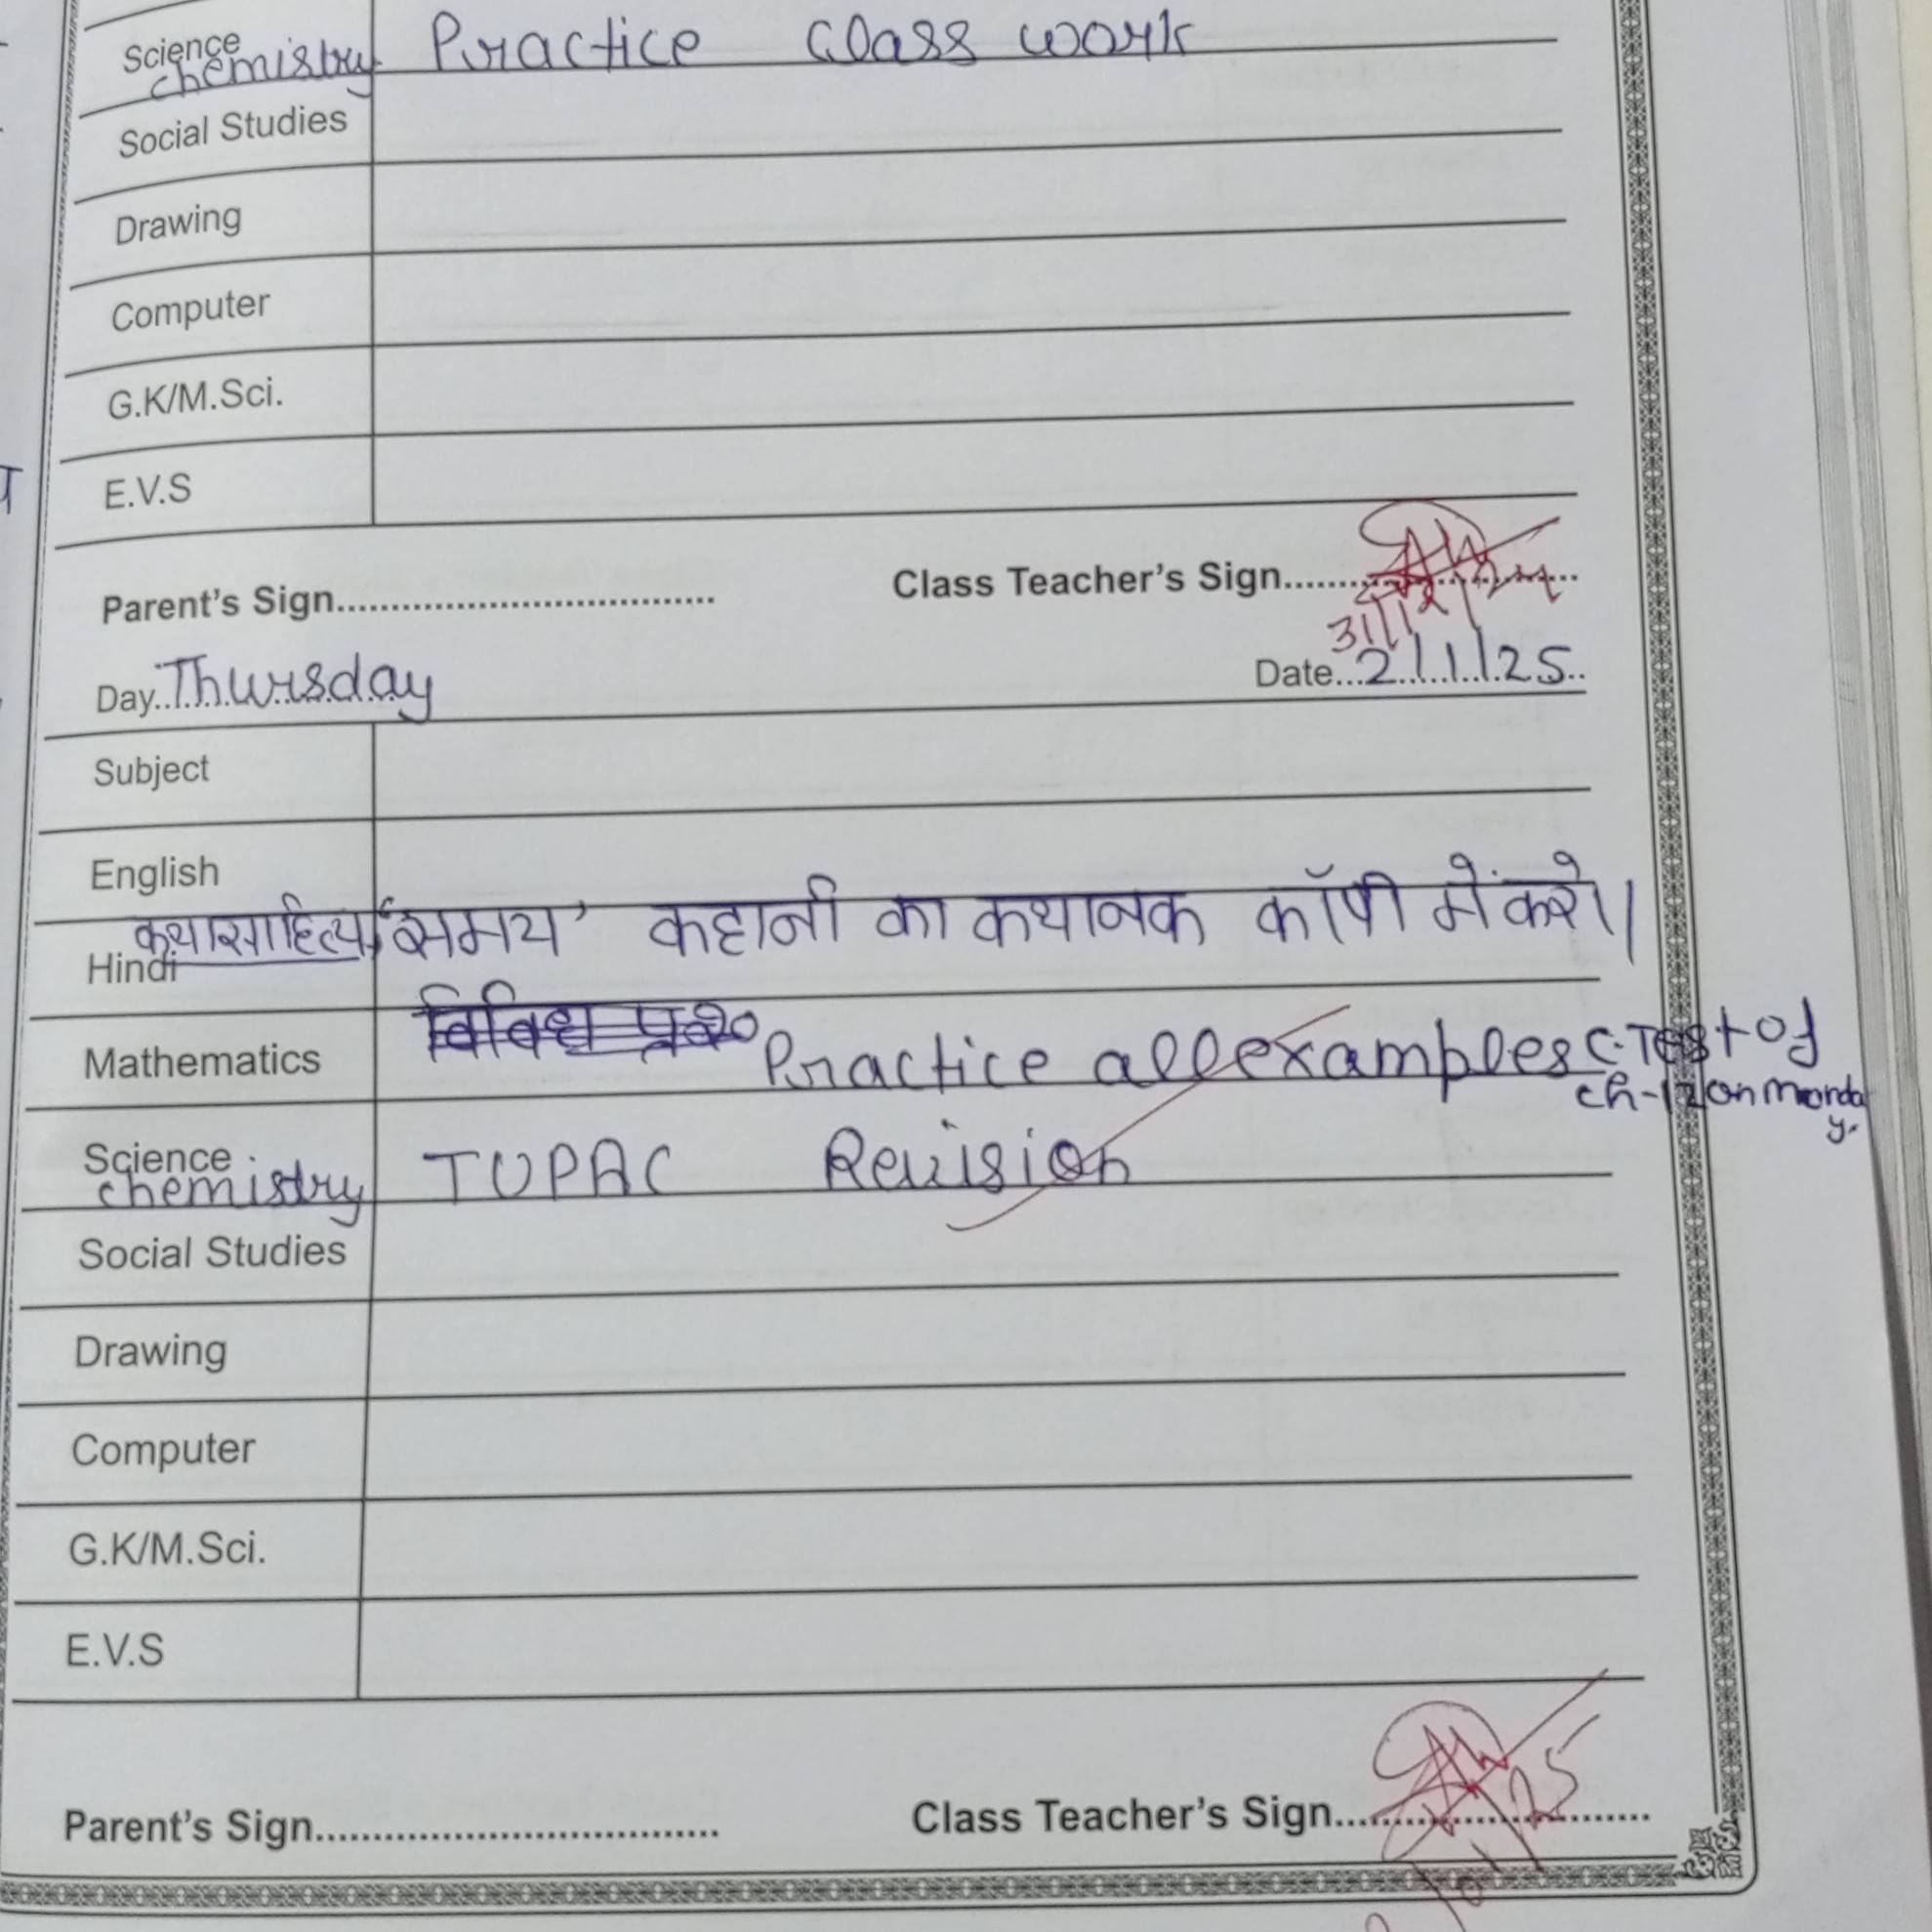 Science
chemistry Practice Class work
Social Studies
Drawing
Computer
G.K/M.Sci.
E.V.S
Parent's Sign.................................... Class Teacher's Sign..............................
31/12/24
Day Thursday Date 2/1/25
Subject
English
Hindi कथासाहित्य, 'समय' कहानी का कथानक कॉपी में करो।
विविध प्र०
Mathematics Practice all examples C.Test of
ch-12 on monday.
Science
chemistry IUPAC Revision
Social Studies
Drawing
Computer
G.K/M.Sci.
E.V.S
Parent's Sign.................................... Class Teacher's Sign..............................